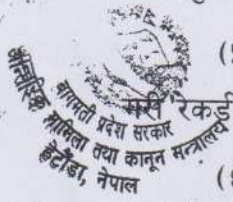 (
बागमती प्रदेश सरकार
रेकर्ड
आन्तरिक मामिला तथा कानून मन्त्रालय
हेटौंडा, नेपाल
(